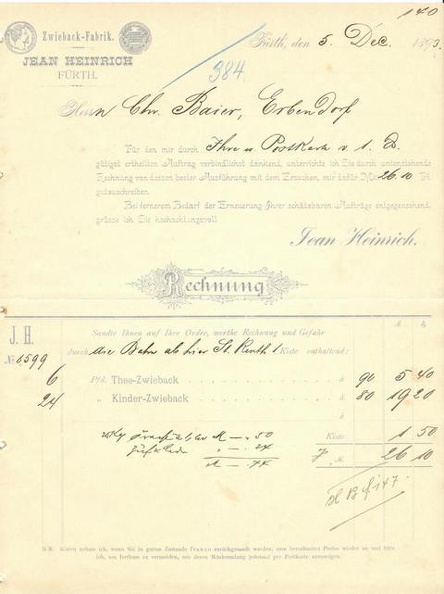 140
Zwieback-Fabrik.
JEAN HEINRICH
FÜRTH.
Fürth, den 5 Dec. 1893.
384.
Herrn Chr. Baier, Erbendorf
Für den mir durch Ihre Postkarte v. 1. D.
gütigst ertheilten Auftrag verbindlichst dankend, unterrichte ich Sie durch untenstehende
Rechnung von dessen bester Ausführung mit dem Ersuchen, mir dafür M 26.10 Pf
gutzuschreiben.
Bei fernerem Bedarf der Erneuerung Ihrer schätzbaren Aufträge entgegensehend,
grüsse ich Sie hochachtungsvoll
Jean Heinrich.
Rechnung
J. H.
Sandte Ihnen auf Ihre Order, werthe Rechnung und Gefahr
№ 1599 durch die Bahn ab hier 1 Kiste enthaltend:
6 Pfd. Thee-Zwieback à 90 5 40
24 „ Kinder-Zwieback à 80 19 20
à
M —. 50 Kiste 1 50
„ —. 24 7 M. 26 10
M —. 74
N.B. Kisten nehme ich, wenn Sie in gutem Zustande franco zurückgesandt werden, zum berechneten Preise wieder an und bitte
ich, um Irrthum zu vermeiden, mir deren Rücksendung jedesmal per Postkarte anzuzeigen.